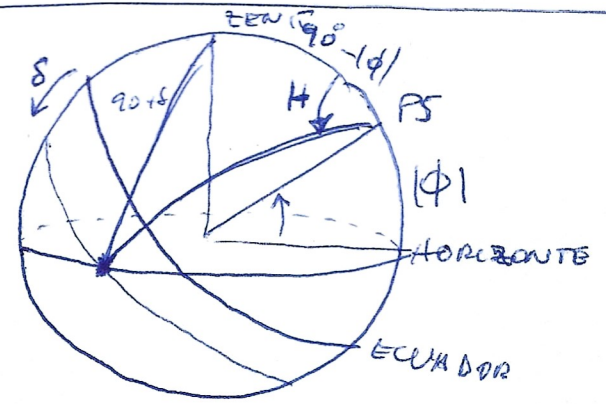 ZENIT
90°-|ϕ|
δ
90+δ
H
PS
|ϕ|
HORIZONTE
ECUADOR